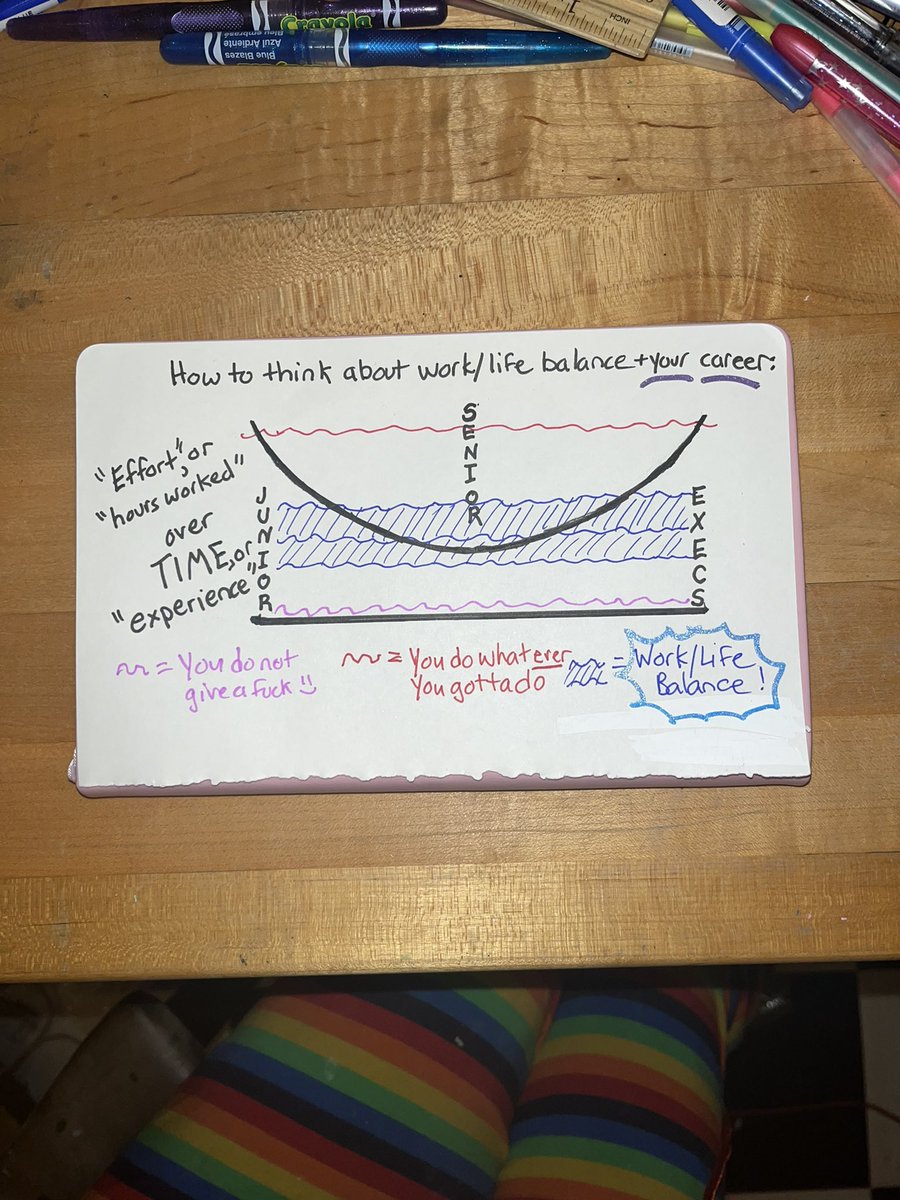 Crayola
Bleu embrasé
Blue Blazes
Azul Ardiente
1
INCH
How to think about work/life balance + your career:
"Effort", or
"hours worked"
over
TIME, or
"experience"
JUNIOR
SENIOR
EXECS
= You do not
give a fuck
= You do whatever
You gotta do
= Work/Life
Balance!